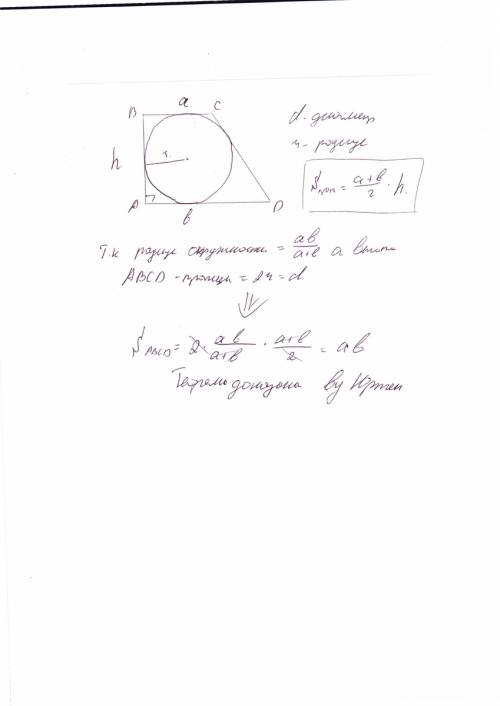 B a C
d - диаметр
r - радиус
h r.
Sтрап = a+b/2 · h.
A b D
Т.к радиус окружности = ab/a+b а высота
ABCD - трапеции = 2r = d
⇓
SABCD = 2 · ab/a+b · a+b/2 = ab
Теорема доказана by Юрген